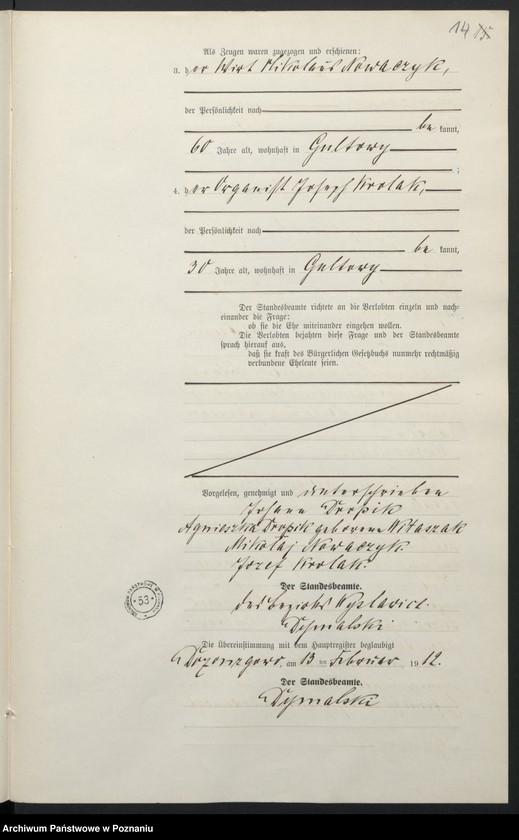 14
Als Zeugen waren zugezogen und erschienen:
3. der Wirt Mikolaus Nowaczyk,
der Persönlichkeit nach
be kannt,
60 Jahre alt, wohnhaft in Gultowy
;
4. der Organist Joseph Krolak,
der Persönlichkeit nach
be kannt,
30 Jahre alt, wohnhaft in Gultowy
Der Standesbeamte richtete an die Verlobten einzeln und nach-
einander die Frage:
ob sie die Ehe miteinander eingehen wollen.
Die Verlobten bejahten diese Frage und der Standesbeamte
sprach hierauf aus,
daß sie kraft des Bürgerlichen Gesetzbuchs nunmehr rechtmäßig
verbundene Eheleute seien.
Vorgelesen, genehmigt und unterschrieben
Johann Dropik
Agnieszka Dropik geborene Witaszak
Mikołaj Nowaczyk.
Jozef Krolak.
Der Standesbeamte.
des Bezirks
53
Die Übereinstimmung mit dem Hauptregister beglaubigt
am 13 ten Februar 1912.
Der Standesbeamte.
Archiwum Państwowe w Poznaniu